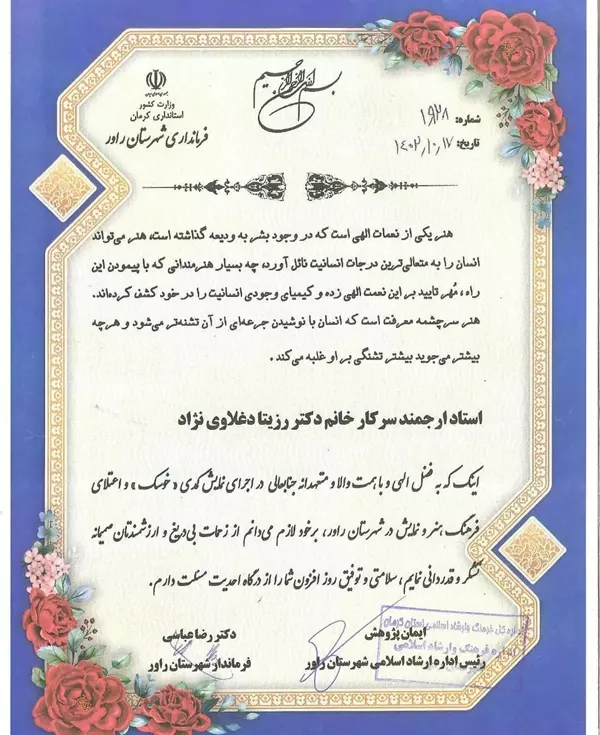 بسم الله الرحمن الرحیم
وزارت کشور
استانداری کرمان
فرمانداری شهرستان راور
شماره: ۱۹۲۸
تاریخ: ۱۴۰۲٫۱۰٫۱۷
هنر یکی از نعمات الهی است که در وجود بشر به ودیعه گذاشته است، هنر می‌تواند
انسان را به متعالی‌ترین درجات انسانیت نائل آورد، چه بسیار هنرمندانی که با پیمودن این
راه، مُهر تایید بر این نعمت الهی زده و کیمیای وجودی انسانیت را در خود کشف کرده‌اند.
هنر سرچشمه معرفت است که انسان با نوشیدن جرعه‌ای از آن تشنه‌تر می‌شود و هرچه
بیشتر می‌جوید بیشتر تشنگی بر او غلبه می‌کند.
استاد ارجمند سرکار خانم دکتر رزیتا دغلاوی نژاد
اینک که به فضل الهی و با همت والا و متعهدانه جنابعالی در اجرای نمایش کمدی «خوسک» و اعتلای
فرهنگ هنر و نمایش در شهرستان راور، برخود لازم می‌دانم از زحمات بی‌دریغ و ارزشمندتان صمیمانه
تشکر و قدردانی نمایم، سلامتی و توفیق روز افزون شما را از درگاه احدیت مسئلت دارم.
اداره کل فرهنگ و ارشاد اسلامی استان کرمان
اداره فرهنگ و ارشاد اسلامی
ایمان پژوهش
رئیس اداره ارشاد اسلامی شهرستان راور
دکتر رضا عباسی
فرماندار شهرستان راور